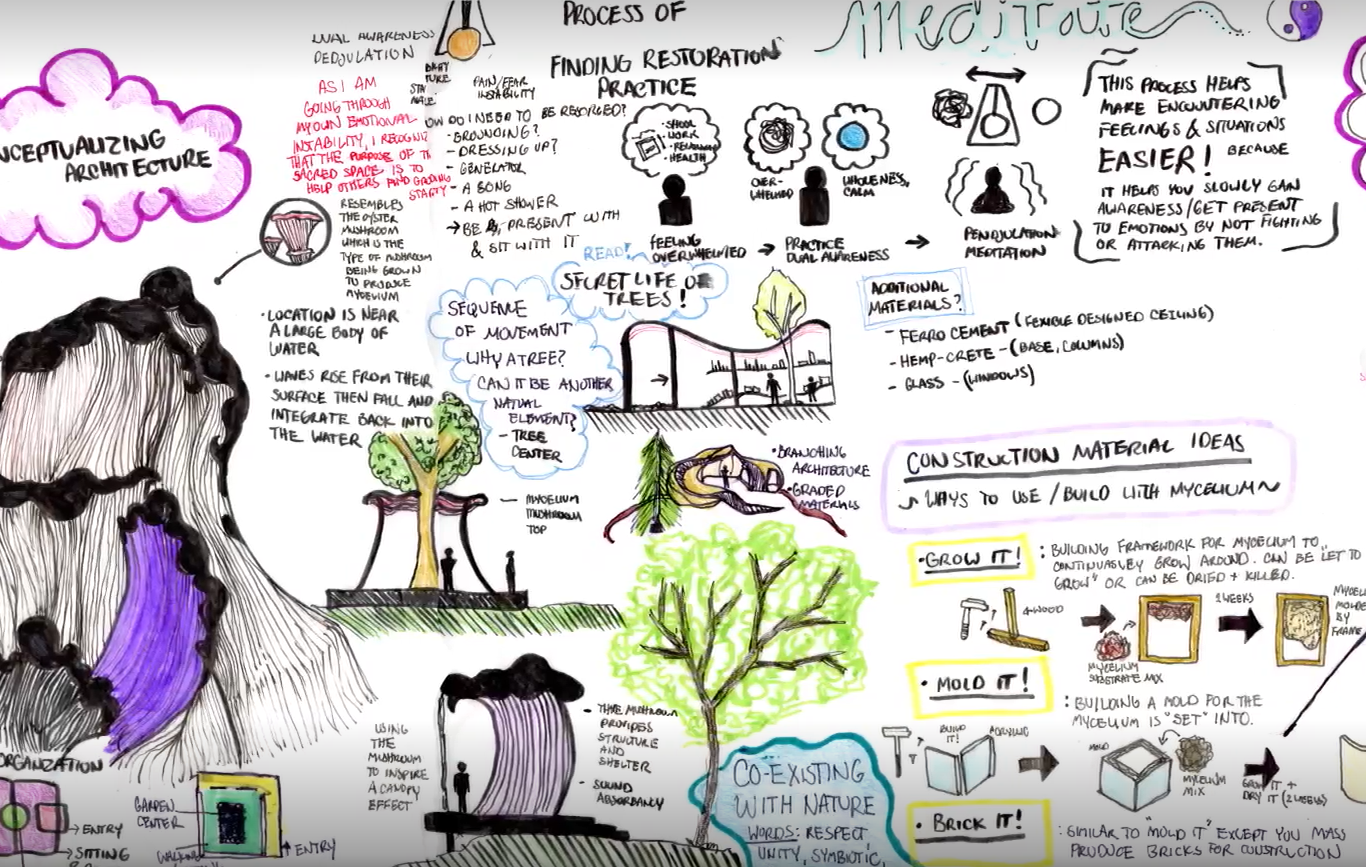 PROCESS OF
FINDING RESTORATION
PRACTICE
Meditate
CONCEPTUALIZING
ARCHITECTURE
DUAL AWARENESS
AS I AM
GOING THROUGH
MY OWN EMOTIONAL
INSTABILITY, I RECOGNIZE
THAT THE PURPOSE OF
SACRED SPACE IS TO
HELP OTHERS AND
PAIN/FEAR
INSTABILITY
DO I NEED TO BE RESTORED?
- GROUNDING?
- DRESSING UP?
- GENERATOR
- A BONG
- A HOT SHOWER
→ BE PRESENT WITH
& SIT WITH IT
· SHOOL
· WORK
HEALTH
FEELING
OVERWHELMED
OVER-
WHELMED
WHOLENESS,
CALM
PRACTICE
DUAL AWARENESS
PENDULATION
MEDITATION
THIS PROCESS HELPS
MAKE ENCOUNTERING
FEELINGS & SITUATIONS
EASIER! BECAUSE
IT HELPS YOU SLOWLY GAIN
AWARENESS/GET PRESENT
TO EMOTIONS BY NOT FIGHTING
OR ATTACKING THEM.
RESEMBLES
THE OYSTER
MUSHROOM
WHICH IS THE
TYPE OF MUSHROOM
BEING GROWN
TO PRODUCE
MYCELIUM
· LOCATION IS NEAR
A LARGE BODY OF
WATER
· WAVES RISE FROM THEIR
SURFACE THEN FALL AND
INTEGRATE BACK INTO
THE WATER
SEQUENCE
OF MOVEMENT
WHY A TREE?
CAN IT BE ANOTHER
NATUAL
ELEMENT?
- TREE
CENTER
READ!
SECRET LIFE OF
TREES!
ADDITIONAL
MATERIALS?
- FERRO CEMENT (FLEXIBLE DESIGNED CEILING)
- HEMP-CRETE - (BASE, COLUMNS)
- GLASS - (WINDOWS)
· BRANCHING
ARCHITECTURE
· GRADED
MATERIALS
— MYCELIUM
MUSHROOM
TOP
CONSTRUCTION MATERIAL IDEAS
WAYS TO USE / BUILD WITH MYCELIUM
· GROW IT!
: BUILDING FRAMEWORK FOR MYCELIUM TO
CONTINUASLEY GROW AROUND. CAN BE "LET TO
GROW" OR CAN BE DRIED + KILLED.
WOOD
2 WEEKS
MYCELIUM
SUBSTRATE MIX
BY
FRAME
· MOLD IT!
: BUILDING A MOLD FOR THE
MYCELIUM IS "SET" INTO.
BUILD
IT!
ACRYLIC
MOLD
MYCELIUM
MIX
GROW IT +
DRY IT (2 WEEKS)
· BRICK IT!
: SIMILAR TO "MOLD IT" EXCEPT YOU MASS
PRODUCE BRICKS FOR CONSTRUCTION
USING
THE
MUSHROOM
TO INSPIRE
A CANOPY
EFFECT
- THE MUSHROOM
PROVIDES
STRUCTURE
AND
SHELTER
- SOUND
ABSORBANCY
CO-EXISTING
WITH NATURE
WORDS: RESPECT
UNITY, SYMBIOTIC,
ORGANIZATION
→ ENTRY
→ SITTING
GARDEN
CENTER
WALKING
→ ENTRY